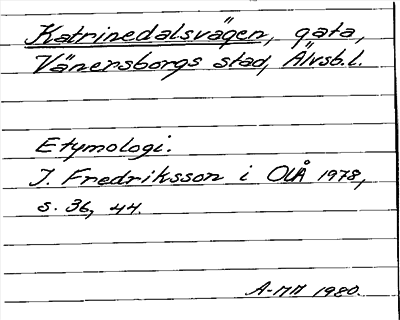 Katrinedalsvägen, gata,
Vänersborgs stad, Älvsb.l.
Etymologi:
I. Fredriksson i OUÅ 1978,
s. 36, 44.
A-MM 1980.